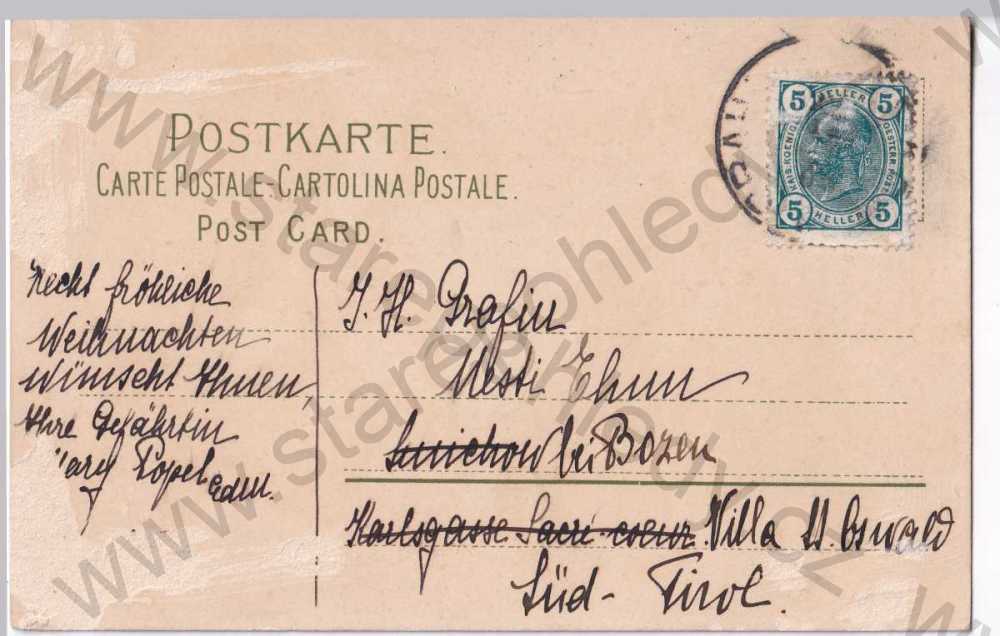 POSTKARTE.
CARTE POSTALE-CARTOLINA POSTALE.
POST CARD.
5 HELLER 5
KAIS. KOENIG. OESTERR. POST
5 HELLER 5
Recht fröhliche
Weihnachten
wünscht Ihnen,
Ihre Gefährtin
J. H. Grafin
Mesti Thun
Smichow bei Bozen
Karlsgasse Sacré-coeur Villa St. Oswald
Süd-Tirol.
www.starepohledy.cz